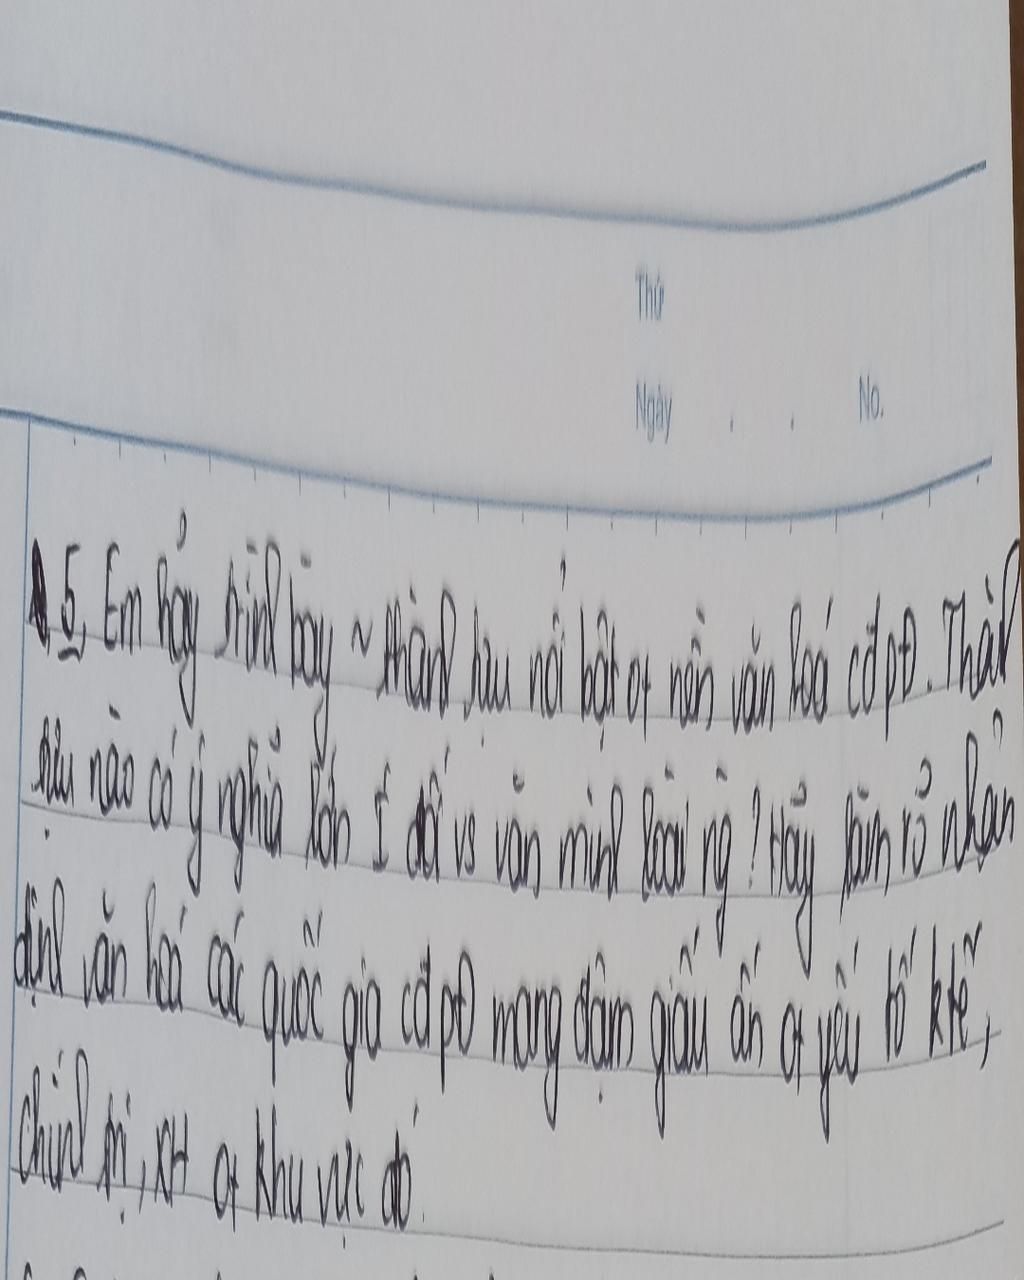 Thứ
Ngày . . No.
5, Em hãy trình bày ~ thành tựu nổi bật of nền văn hoá cổ pĐ. Thành
tựu nào có ý nghĩa lớn I đối vs văn minh loài ng? Hãy làm rõ nhận
định văn hoá các quốc gia cổ pĐ mang đậm giấu ấn of yếu tố ktế,
chính trị, XH of khu vực đó.